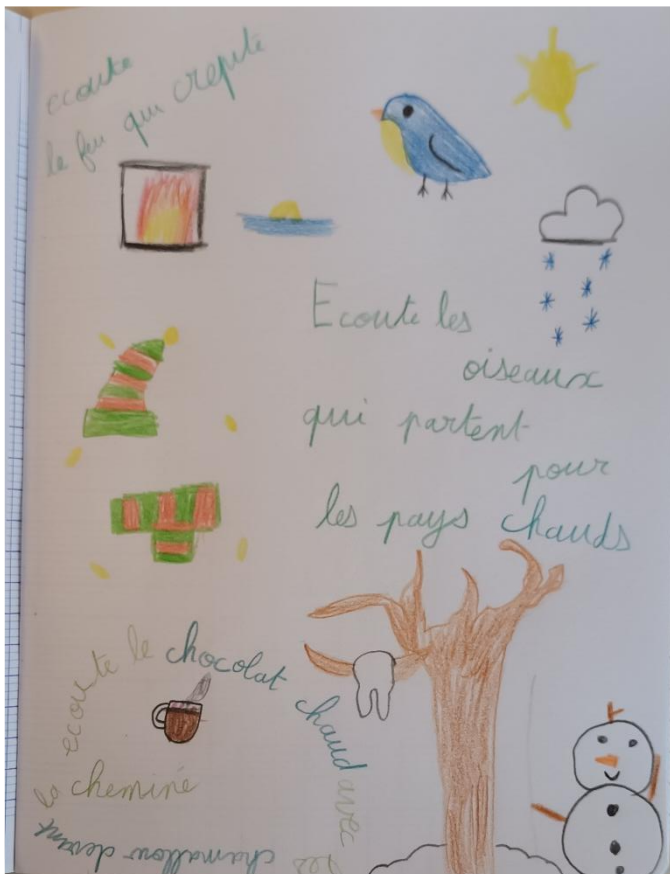 ecoute
le feu qui crepite
Ecoute les
oiseaux
qui partent
pour
les pays chauds
ecoute le chocolat chaud avec les
chamallow devant
la cheminé